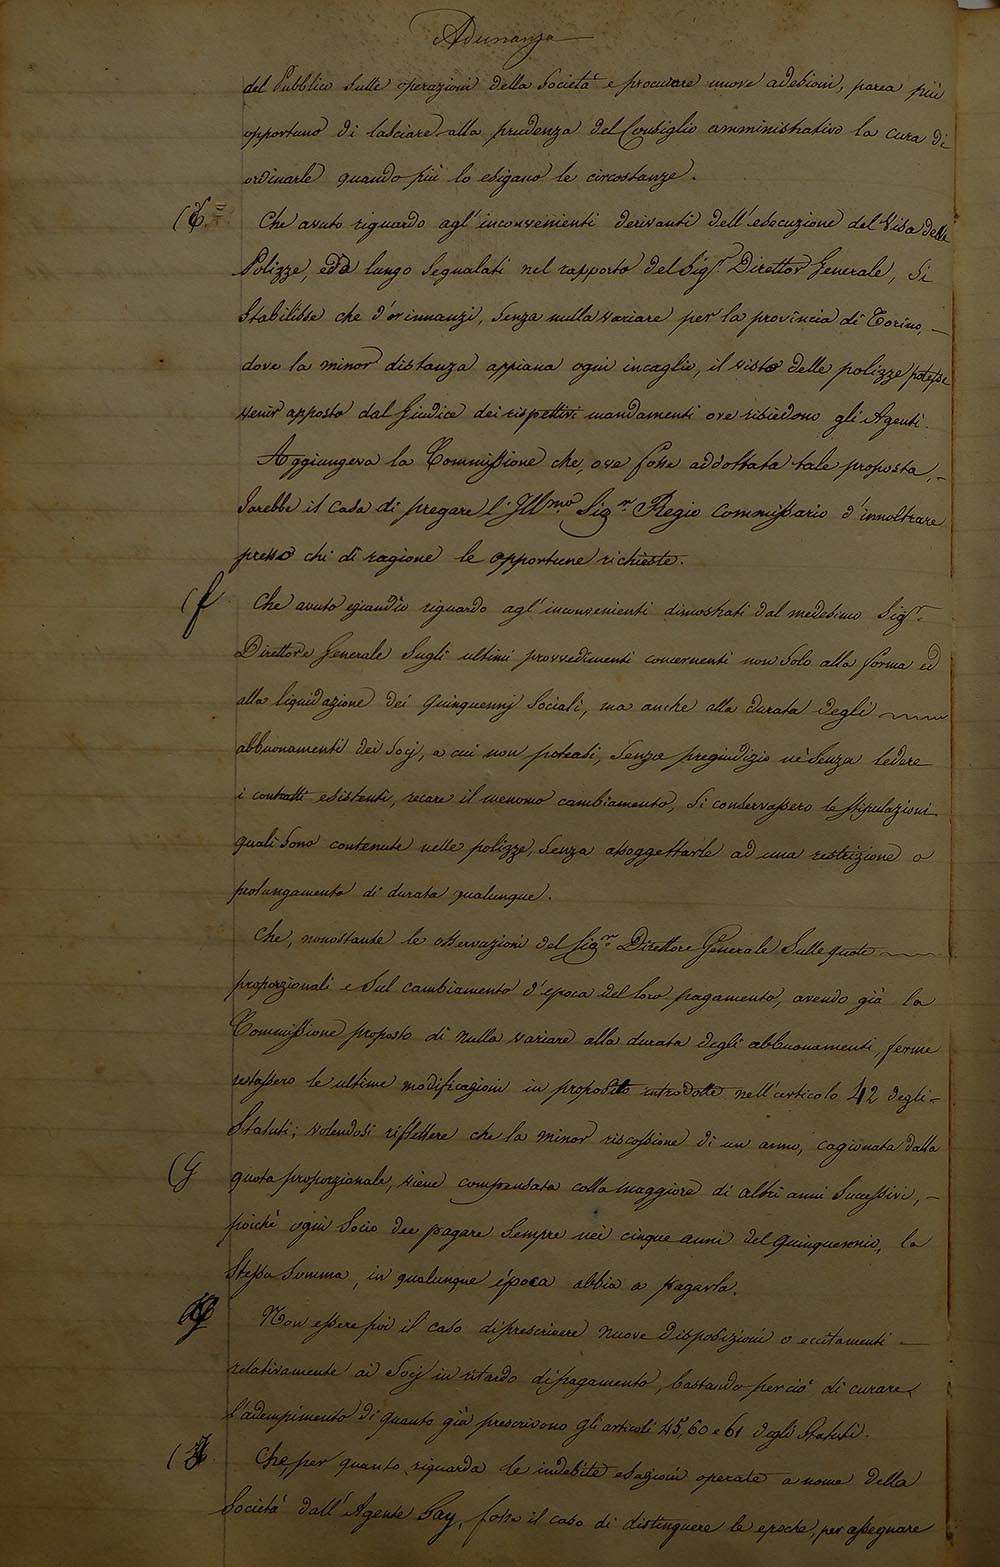 Adunanza
del Pubblico sulle operazioni della Società e procurare nuove adesioni, parea più
opportuno di lasciare alla prudenza del Consiglio amministrativo la cura di
ordinarle quando più lo esigano le circostanze.
(E.= Che avuto riguardo agl'inconvenienti derivanti dell'esecuzione del Visa delle
Polizze, ed a lungo segnalati nel rapporto del Sigr. Direttor Generale, si
stabilisse che d'or innanzi, senza nulla variare per la provincia di Torino,
dove la minor distanza appiana ogni incaglio, il visto delle polizze potesse
venir apposto dal Giudice dei rispettivi mandamenti ove risiedono gli Agenti.
Aggiungeva la Commissione che, ove fosse addottata tale proposta,
sarebbe il caso di pregare l'Illmo Sigr. Regio Commissario d'innoltrare
presso chi di ragione le opportune richieste.
(f Che avuto eziandio riguardo agl'inconvenienti dimostrati dal medesimo Sigr.
Direttore Generale sugli ultimi provvedimenti concernenti non solo alla forma ed
alla liquidazione dei quinquennj sociali, ma anche alla durata degli
abbuonamenti dei Socj, a cui non potrassi, senza pregiudizio nè senza ledere
i contratti esistenti, recare il menomo cambiamento, si conservassero le stipulazioni
quali sono contenute nelle polizze, senza assoggettarle ad una restrizione o
prolungamento di durata qualunque.
Che, nonostante le osservazioni del Sigr. Direttore Generale sulle quote
proporzionali e sul cambiamento d'epoca del loro pagamento, avendo già la
Commissione proposto di nulla variare alla durata degli abbuonamenti, ferme
restassero le ultime modificazioni in proposito introdotte nell'articolo 42 degli
Statuti; volendosi riflettere che la minor riscossione di un anno, cagionata dalla
(G quota proporzionale, viene compensata colla maggiore di altri anni successivi,
poichè ogni Socio dee pagare sempre nei cinque anni del quinquennio, la
stessa somma, in qualunque época abbia a pagarla.
Non essere poi il caso di prescrivere nuove disposizioni o eccitamenti
relativamente ai Socj in ritardo di pagamento, bastando perciò di curare
l'adempimento di quanto già prescrivono gli articoli 45, 60 e 61 degli Statuti.
Che, per quanto riguarda le indebite esazioni operate a nome della
Società dall'Agente Gay, fosse il caso di distinguere le epoche, per assegnare